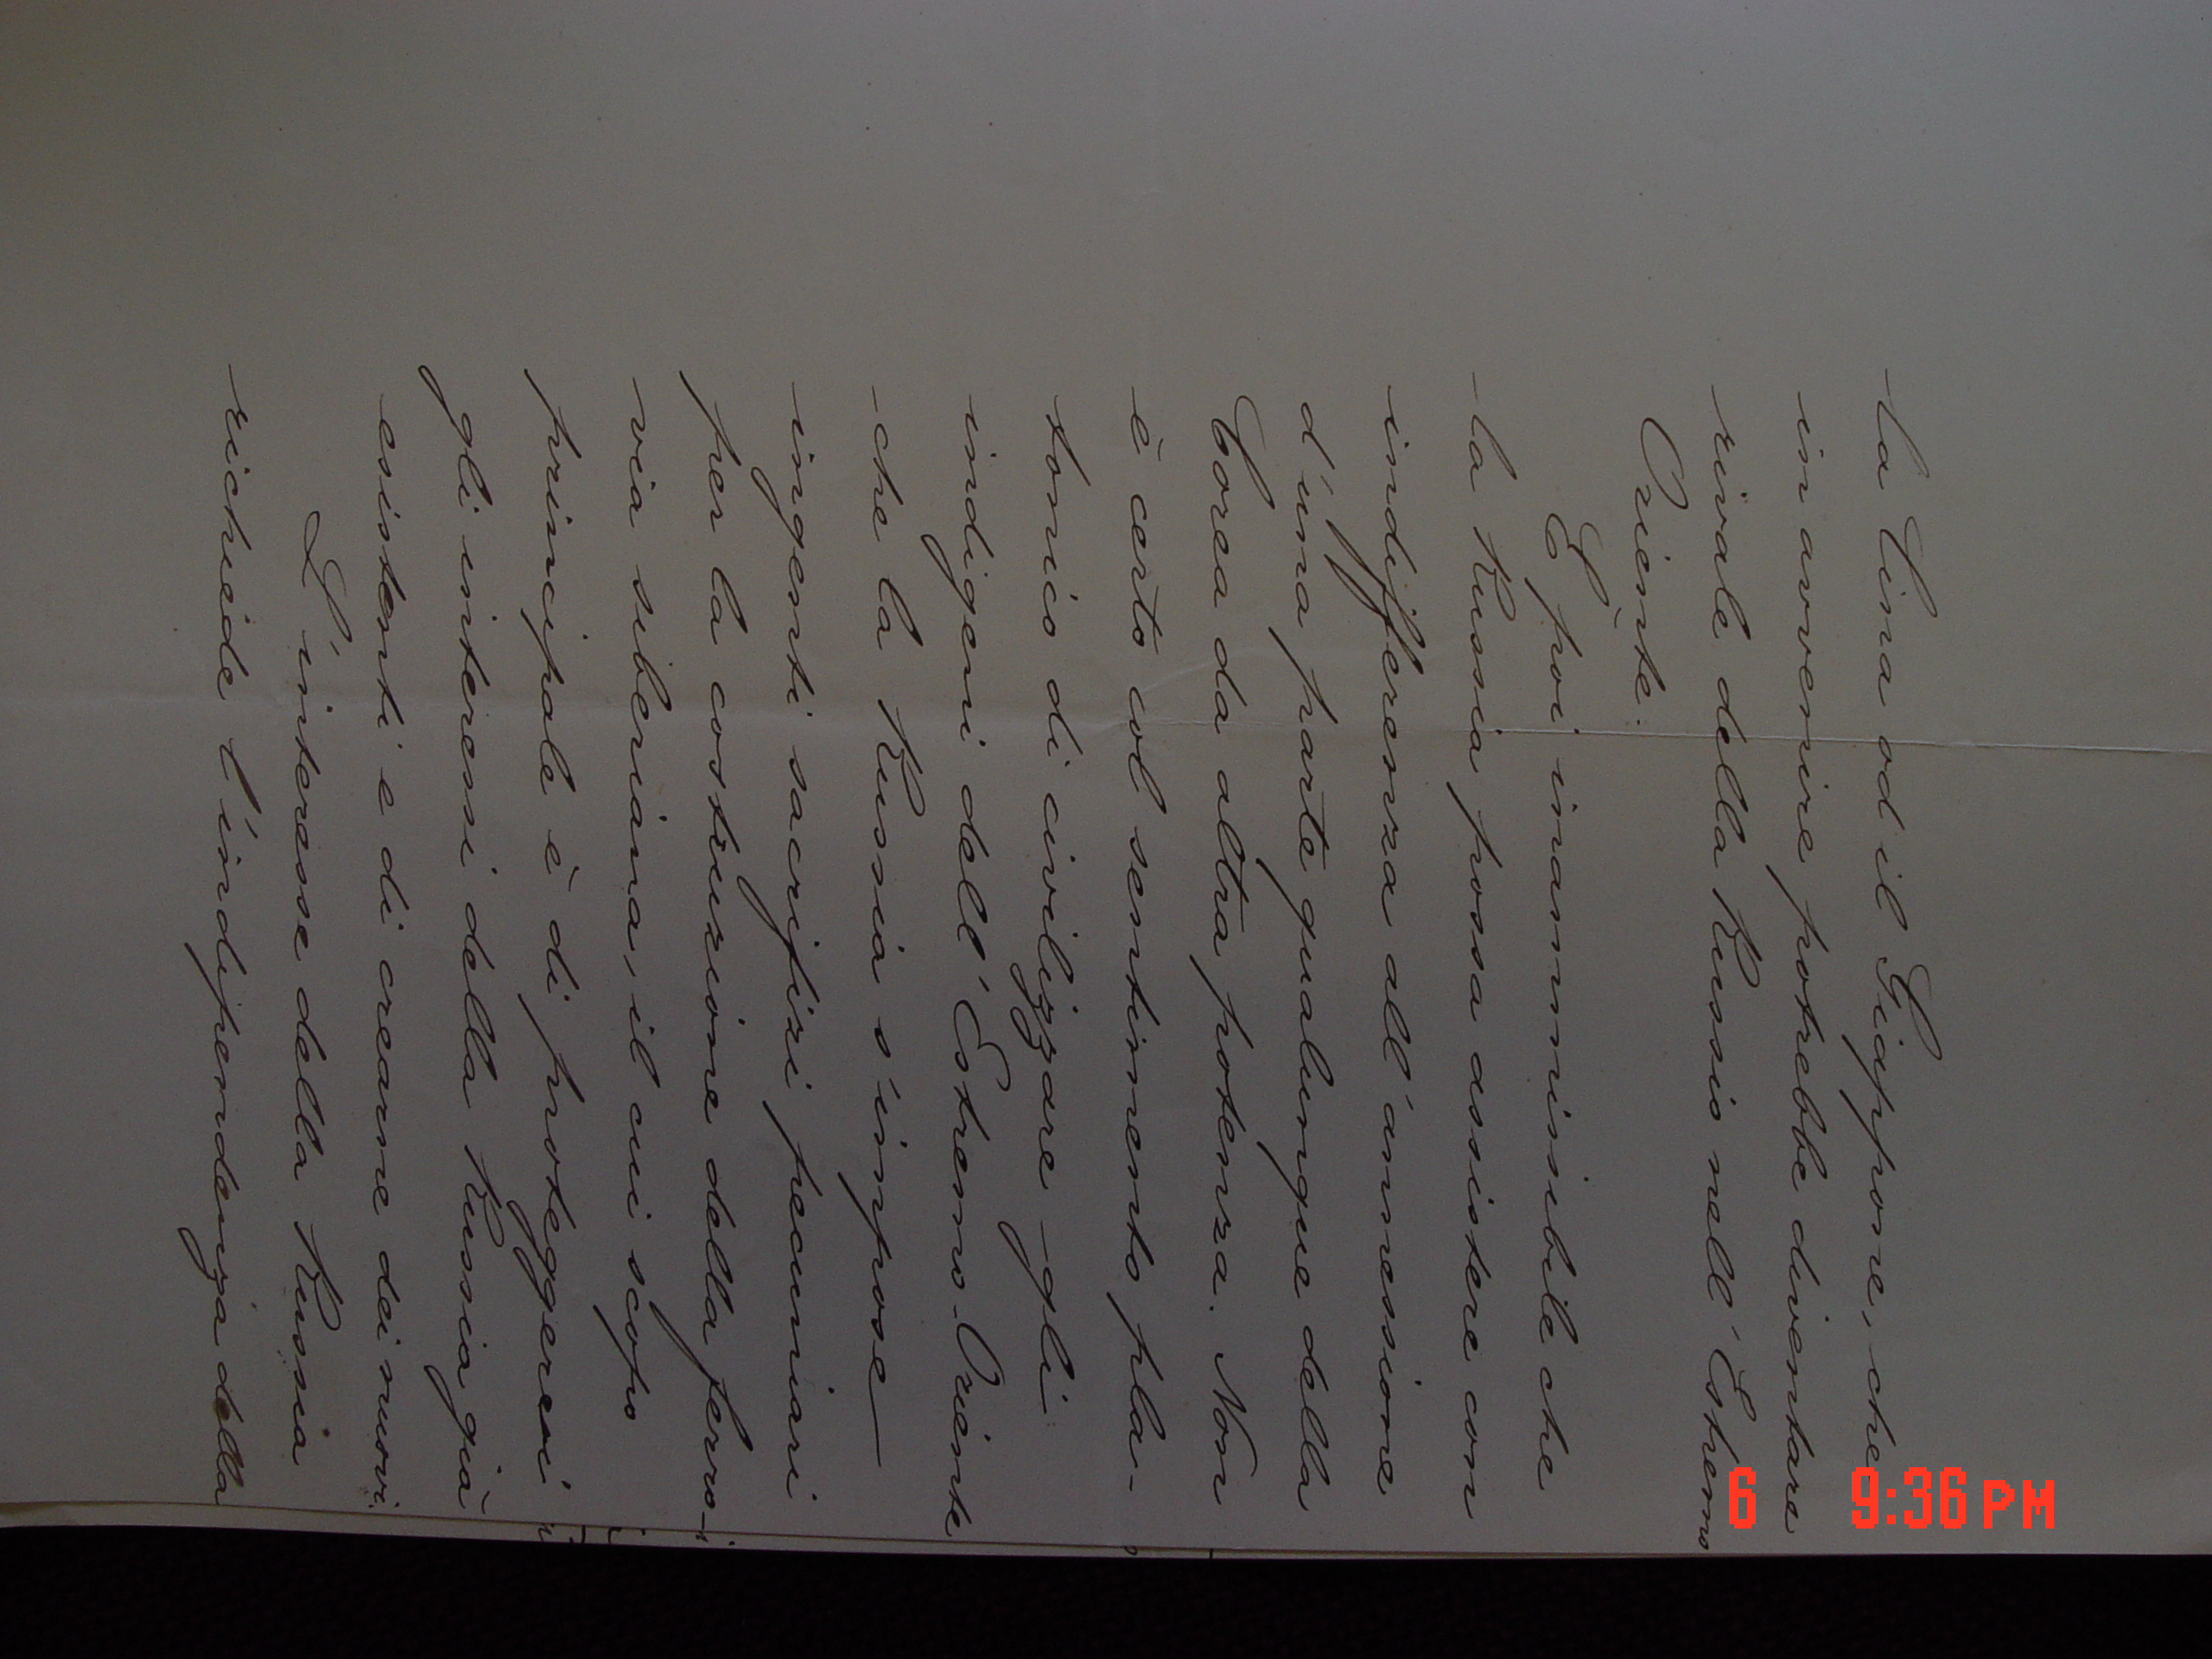 la Cina od il Giappone, che
in avvenire potrebbe diventare
rivale della Russia nell'Estremo
Oriente.
È poi inammissibile che
la Russia possa assistere con
indifferenza all'annessione
d'una parte qualunque della
Corea da altra potenza. Non
è certo col sentimento pla-
tonico di civilizzare gli
indigeni dell'Estremo-Oriente
che la Russia s'impose
ingenti sacrifizi pecuniari
per la costruzione della ferro-
via siberiana, il cui scopo
principale è di proteggere
gli interessi della Russia già
esistenti e di crearne dei nuovi.
L'interesse della Russia
richiede l'indipendenza della
6 9:36 PM